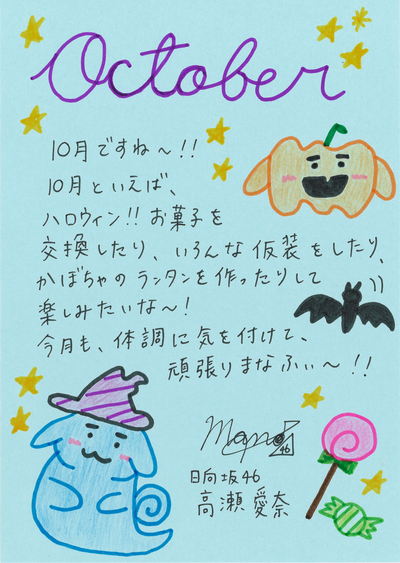 October
10月ですね〜!!
10月といえば、
ハロウィン!! お菓子を
交換したり、いろんな仮装をしたり、
かぼちゃのランタンを作ったりして
楽しみたいな〜!
今月も、体調に気を付けて、
頑張りまなふぃ〜!!
46
日向坂46
高瀬愛奈